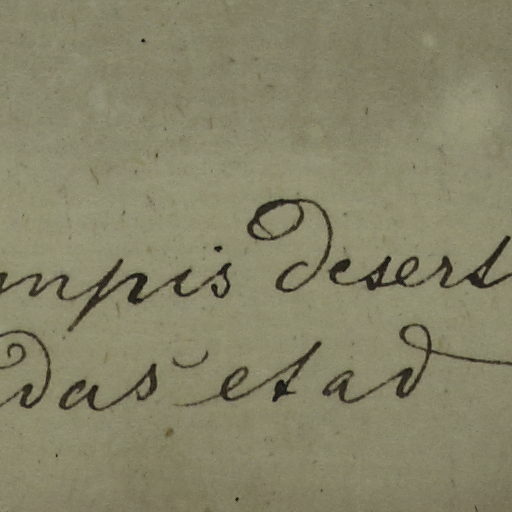 mpis desert
das et ad